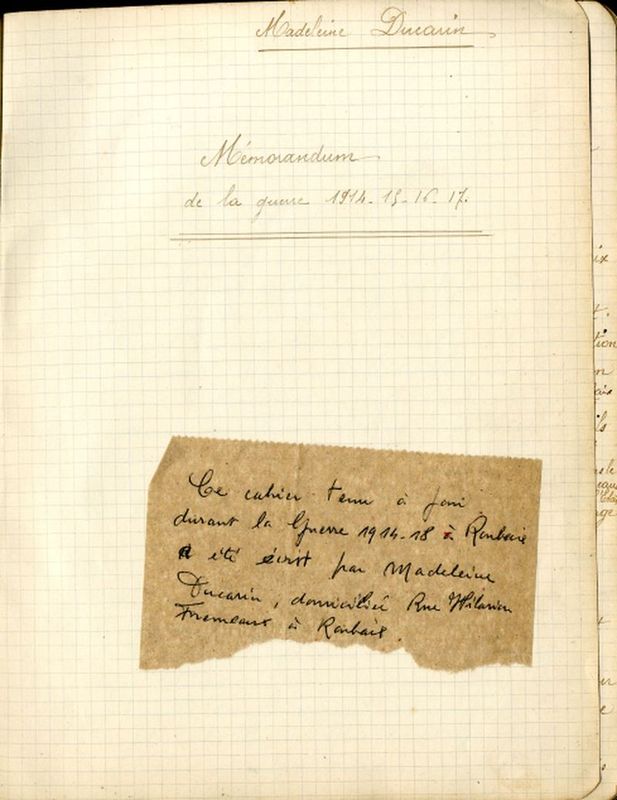 Madeleine Ducarin
Mémorandum
de la guerre 1914-15-16-17.
Ce cahier tenu à jour
durant la Guerre 1914-18 à Roubaix
a été écrit par Madeleine
Ducarin, domicilié Rue Hilarion
à Roubaix.